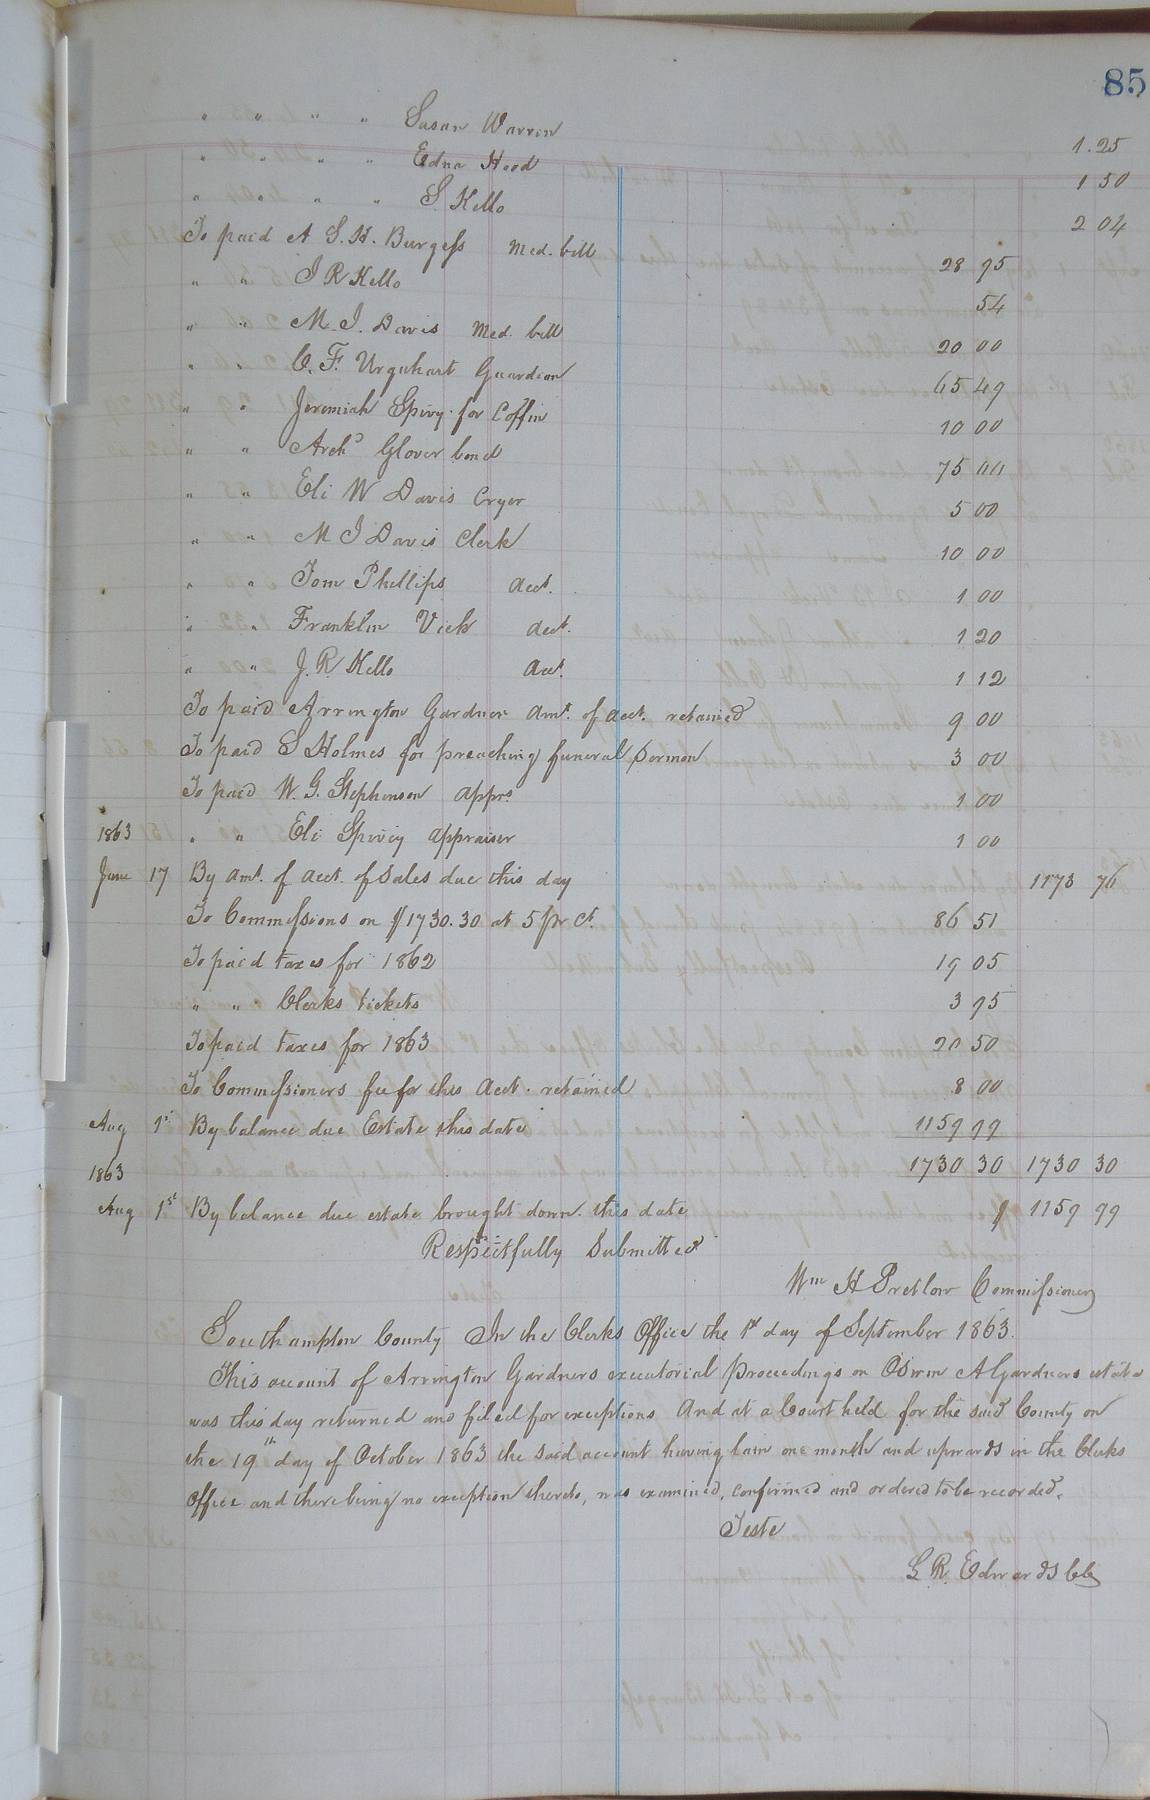 85
" " " " Susan Warren 1.25
" " " " Edna Hood 1 50
" " " " S. Kello 2 04
To paid A S. H. Burgess Med. bill 28 95
" " J R Kello 54
" " M. J. Davis Med. bill 20 00
" " C. F. Urquhart Guardian 65 49
" " Jeremiah Spivy for Coffin 10 00
" " Archd Glover bond 75 00
" " Eli W Davis Cryer 5 00
" " M J Davis Clerk 10 00
" " Tom Phillips acct. 1 00
" " Franklin Vick acct. 1 20
" " J. R. Kello acct. 1 12
To paid Arrington Gardner amt. of acct. retained 9 00
To paid S Holmes for preaching funeral Sermon 3 00
To paid W. G. Stephenson apprs 1 00
1863 " " Eli Spivey appraiser 1 00
June 17 By amt. of acct. of sales due this day 1173 76
To Commissions on $1730.30 at 5 pr ct. 86 51
To paid taxes for 1862 19 05
" " Clerks tickets 3 95
To paid taxes for 1863 20 50
To Commissioners fee for this acct. retained 8 00
Aug 1st By balance due Estate this date 1159 99
1863 1730 30 1730 30
Aug 1st By balance due estate brought down this date $ 1159 99
Respectfully Submitted
Wm H Pretlow Commissioner
Southampton County In the Clerks Office the 1st day of September 1863.
This account of Arrington Gardners executorial proceedings on Oswin A Gardners estate
was this day returned and filed for exceptions And at a Court held for the said County on
the 19th day of October 1863 the said account having lain one month and upwards in the Clerks
Office and there being no exception thereto, was examined, confirmed and ordered to be recorded.
Teste
L R. Edwards Clk